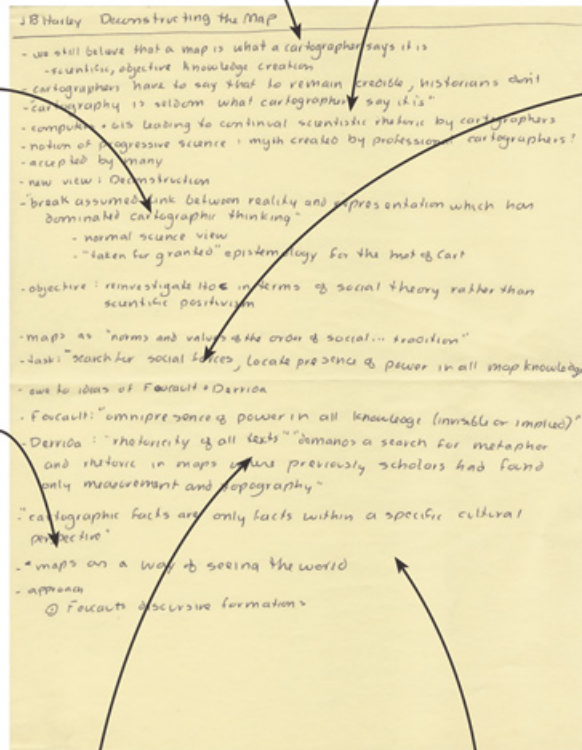 JB Harley Deconstructing the Map
- we still believe that a map is what a cartographer says it is
- scientific, objective knowledge creation
- cartographers have to say that to remain credible, historians don't
- "cartography is seldom what cartographers say it is"
- computers + GIS leading to continual scientistic rhetoric by cartographers
- notion of progressive science : myth created by professional cartographers!
- accepted by many
- new view : Deconstruction
- "break assumed link between reality and representation which has
dominated cartographic thinking"
- normal science view
- "taken for granted" epistemology for the Hist of Cart
- objective : reinvestigate HoC in terms of social theory rather than
scientific positivism
- maps as "norms and values of the order of social... tradition"
- task: "search for social forces, locate presence of power in all map knowledge
- owe to ideas of Foucault + Derrida
- Foucault: "omnipresence of power in all knowledge (invisible or implied)"
- Derrida : "rhetoricity of all texts" "demands a search for metaphor
and rhetoric in maps where previously scholars had found
only measurement and topography"
- "cartographic facts are only facts within a specific cultural
perspective"
- * maps as a way of seeing the world
- approach
① Foucaults discursive formations